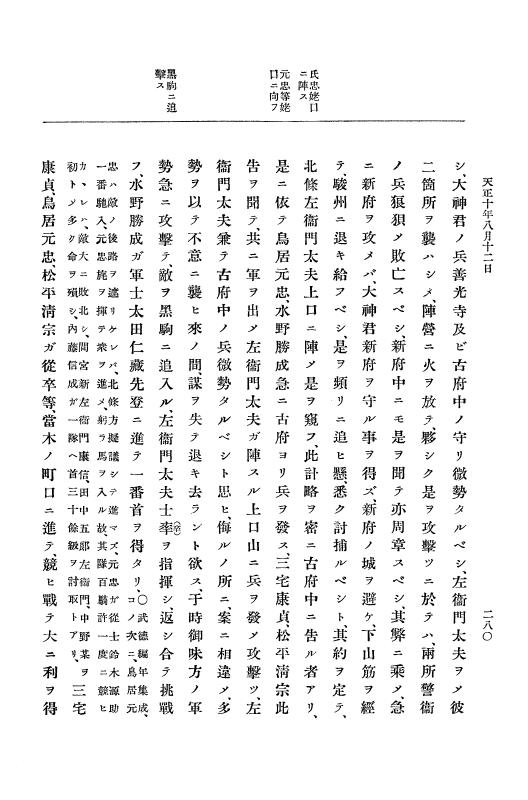 天正十年八月十二日
二八〇
氏忠姥口
ニ陣ス
元忠等姥
口ニ向フ
黒駒ニ追
撃ス
シ、大神君ノ兵善光寺及ビ古府中ノ守リ微勢タルベシ、左衞門太夫ヲメ彼
二箇所ヲ襲ハシメ、陣營ニ火ヲ放テ、夥シク是ヲ攻撃ツニ於テハ、兩所警衞
ノ兵狼狽メ敗亡スベシ、新府中ニモ是ヲ聞テ亦周章スベシ、其弊ニ乘メ、急
ニ新府ヲ攻メバ、大神君新府ヲ守ル事ヲ得ズ、新府ノ城ヲ避ケ、下山筋ヲ經
テ、駿州ニ退キ給フベシ、是ヲ頻リニ追ヒ懸、悉ク討捕ルベシト、其約ヲ定テ、
北條左衞門太夫上口ニ陣メ是ヲ窺フ、此計略ヲ密ニ古府中ニ告ル者アリ、
是ニ依テ鳥居元忠、水野勝成急ニ古府ヨリ兵ヲ發ス、三宅康貞、松平淸宗此
告ヲ聞テ、共ニ軍ヲ出メ左衞門太夫ガ陣スル上口山ニ兵ヲ發メ攻撃ツ、左
衞門太夫兼テ古府中ノ兵微勢タルベシト思ヒ、侮ルノ所ニ、案ニ相違メ、多
勢ヲ以テ不意ニ襲ヒ來ノ間、謀ヲ失テ退キ去ラント欲ス、于時御味方ノ軍
勢急ニ攻撃テ、敵ヲ黒駒ニ追入ル、左衞門太夫士率(卒)ヲ指揮シ、返シ合テ挑戰
フ、水野勝成ガ軍士太田仁藏先登ニ進テ一番首ヲ得タリ、〇武德編年集成、コノ次ニ、鳥居元
忠ハ敵ノ後路ヲ遮リケレバ、北條方擬議シテ進マズ、元忠ガ從士鈴木源助
一番馳入、元忠旄ヲ揮テ衆ヲ進メ、躬ラ馬ヲ入ル故、其隊百騎許一度ニ競ヒ
カヽレハ、敵大ニ敗北シ、間宮新左衞門康信、田中五郎左衞門、中野某ヲ
初トメ多ク命ヲ殞シ、內藤信成ガ一隊ヘ首三十餘級ヲ討取トアリ、三宅
康貞、鳥居元忠、松平淸宗ガ從卒等、當木ノ町口ニ進テ、競ヒ戰テ大ニ利ヲ得